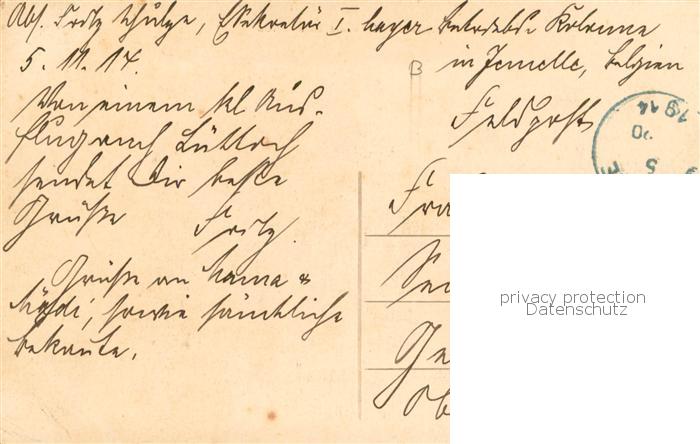 Abs. Fritz Schulze, Sekretär I. bayer. Betriebs. Kolonne
5. 11. 14. in Jemelle, Belgien
B
Feldpost
1914
Von einem kl Aus-
flug nach Lüttich
sendet Dir beste
Grüße Fritz.
Grüße an Mama &
sowie sämtliche
Bekannte.
Fra
Ob
privacy protection
Datenschutz